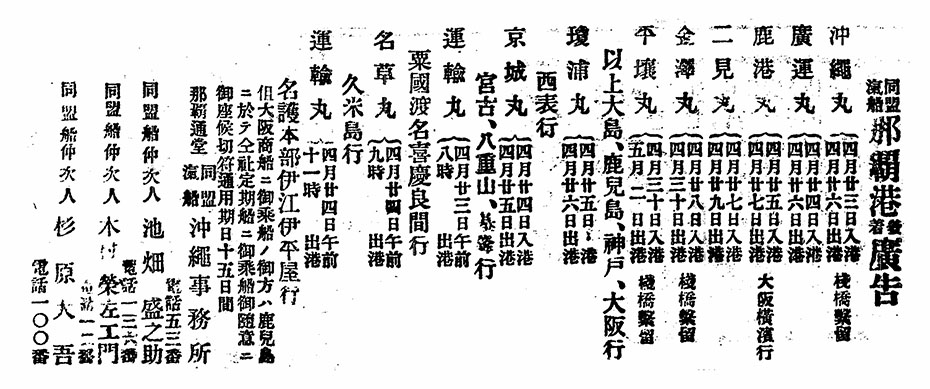 同盟汽船那覇港發着廣告
沖繩丸 四月廿三日入港 四月廿六日出港 棧橋繫留
廣運丸 四月廿四日入港 四月廿六日出港
鹿港丸 四月廿五日入港 四月廿七日出港 大阪橫濱行
二見丸 四月廿七日入港 四月廿九日出港
金澤丸 四月廿八日入港 四月三十日出港 棧橋繫留
平壤丸 四月三十日入港 五月二日出港 棧橋繫留
以上大島、鹿兒島、神戶、大阪行
瓊浦丸 四月廿五日入港 四月廿六日出港
西表行
京城丸 四月廿四日入港 四月廿五日出港
宮古、八重山、基隆行
運輸丸 四月廿三日午前九時出港
粟國渡名喜慶良間行
名草丸 四月廿四日午前九時出港
久米島行
運輸丸 四月廿四日午前十一時出港
名護本部伊江伊平屋行
但大阪商船ニ御乘船ノ御方ハ鹿兒島
ニ於テ仝社定期船ニ御乘船御隨意ニ
御座候切符通用期日十五日間
那覇通堂 同盟汽船 沖繩事務所
電話五三番
同盟船仲次人 池畑盛之助
電話一三六番
同盟船仲次人 木村榮左工門
電話一一二番
同盟船仲次人 杉原大吾
電話一〇〇番